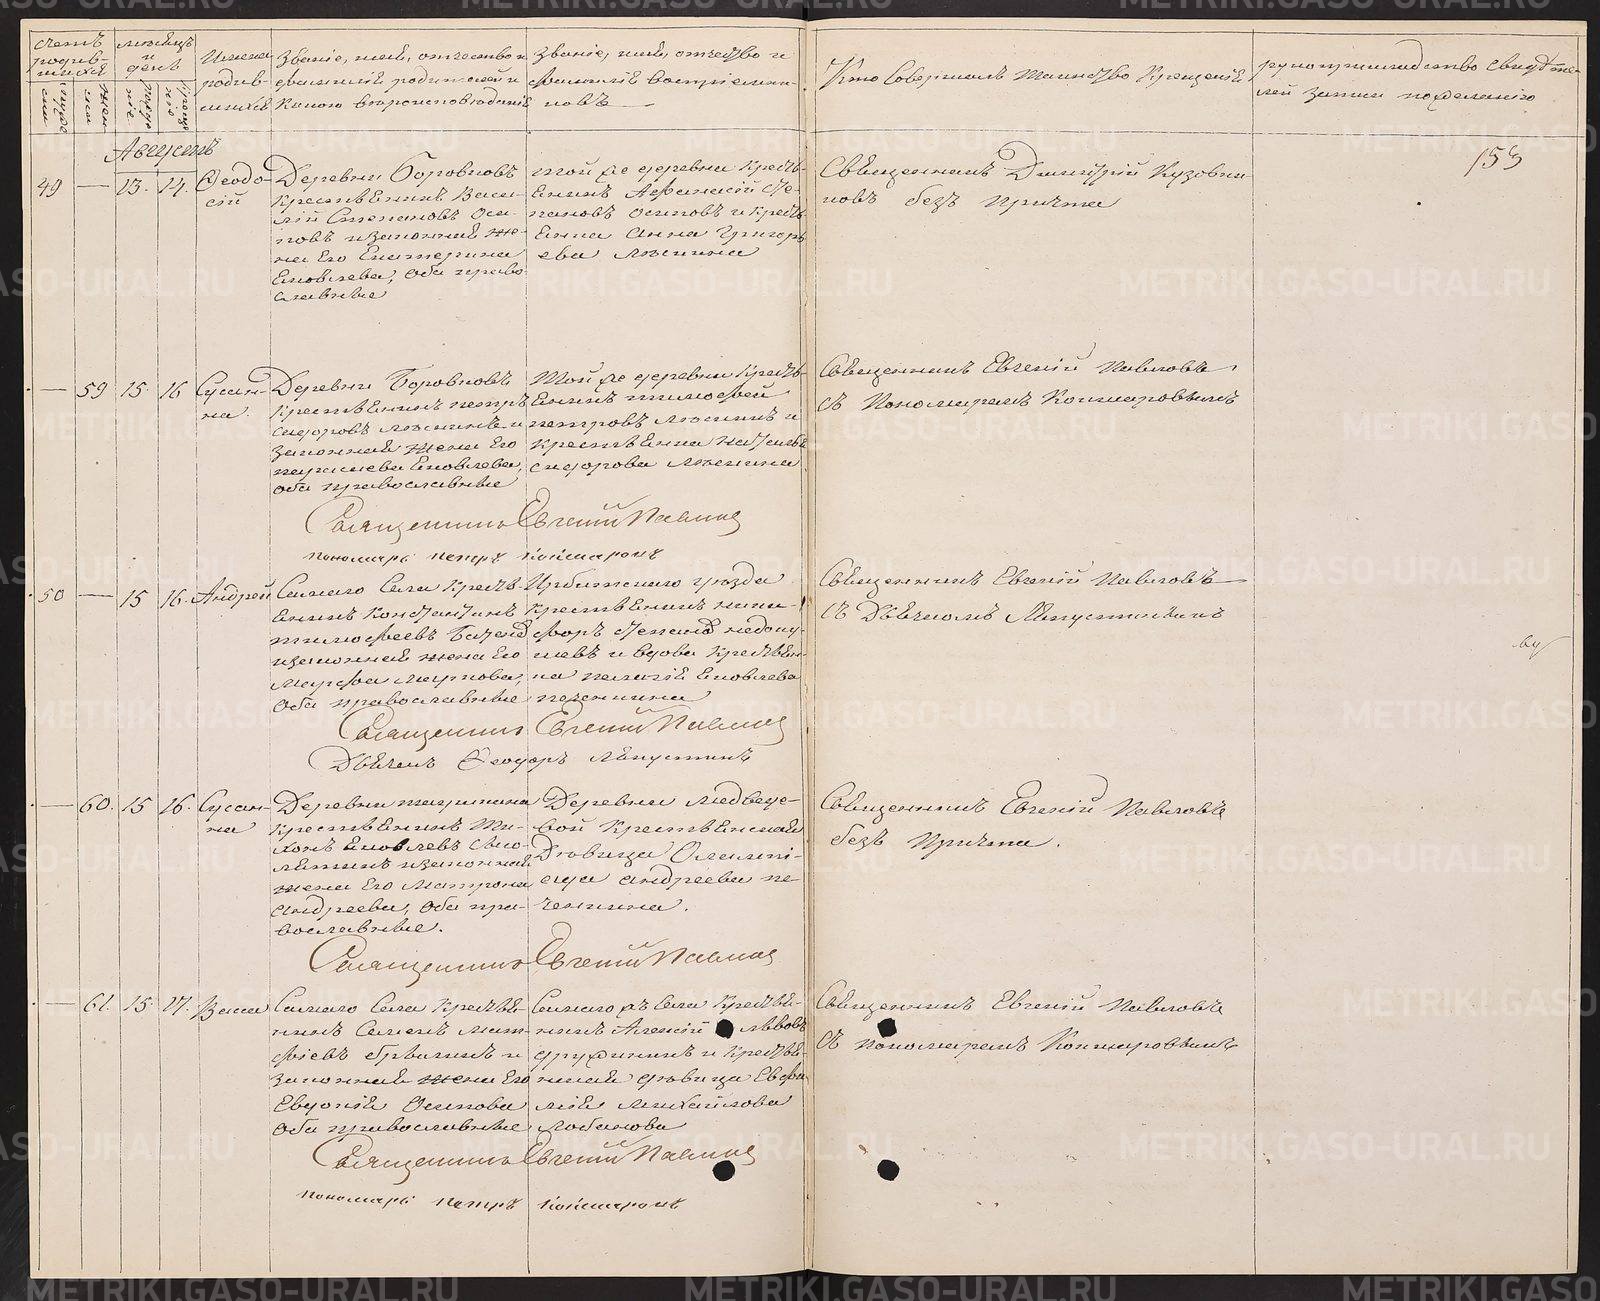 Счетъ родив-шихся
мужеска
женска
Мѣсяцъ и день
рожденія
крещенія
Имена родив-шихся
Званіе, имя, отчество и
фамилія родителей и
какого вѣроисповѣданія
Званіе, имя, отчество и
фамилія воспріемни-
ковъ
Кто совершалъ таинство крещенія
рукоприкладство свидѣте-
лей записи по желанію
153
Августъ
49 — 13. 14. Ѳеодо-
сій
Деревни Боровковъ
крестьянинъ Васи-
лій Степановъ Оси-
повъ и законная же-
на его Екатерина
Яковлева, оба право-
славные
той же деревни кресть-
янинъ Афанасій Сте-
пановъ Осиповъ и кресть-
янка Анна Григорь-
ева
Священникъ Димитрій Кузовни-
ковъ безъ причта
— 59 15. 16 Сусан-
на
Деревни Боровковъ
крестьянинъ Петръ
Сидоровъ и
законная жена его
Яковлева,
оба православные
той же деревни кресть-
янинъ Тимофей
Петровъ и
крестьянка Наталья
Сидорова
Священникъ Евгеній Павловъ
съ пономаремъ Кокшаровымъ
Священникъ Евгеній Павловъ
пономарь Петръ Кокшаровъ
50 — 15 16. Андрей
Самаго села кресть-
янинъ Константинъ
Тимофеевъ
и законная жена его
Марфа Карпова,
оба православные
Ирбитскаго уѣзда
крестьянинъ Ники-
форъ Степановъ
и вдова крестьян-
ка Пелагія Яковлева
Печенкина
Священникъ Евгеній Павловъ
съ дьячкомъ Лапустинымъ
Священникъ Евгеній Павловъ
Дьячекъ Ѳеодоръ Лапустинъ
— 60. 15 16. Сусан-
на
Деревни
крестьянинъ Ти-
хонъ Яковлевъ
и законная
жена его Матрона
Андреева, оба пра-
вославные.
Деревни Медвѣде-
вой крестьянская
дѣвица Олимпі-
ада Андреева Пе-
ченкина.
Священникъ Евгеній Павловъ
безъ причта.
Священникъ Евгеній Павловъ
— 61. 15. 17. Васса
Самаго села крестья-
нинъ Семенъ Мат-
фіевъ и
законная жена его
Евдокія Осипова
оба православные
Самаго жъ села крестья-
нинъ Алексій Львовъ
Дружининъ и крестья-
нская дѣвица Евфи-
мія Михайлова
Лобанова
Священникъ Евгеній Павловъ
съ пономаремъ Кокшаровымъ
Священникъ Евгеній Павловъ
пономарь Петръ Кокшаровъ
METRIKI.GASO-URAL.RU